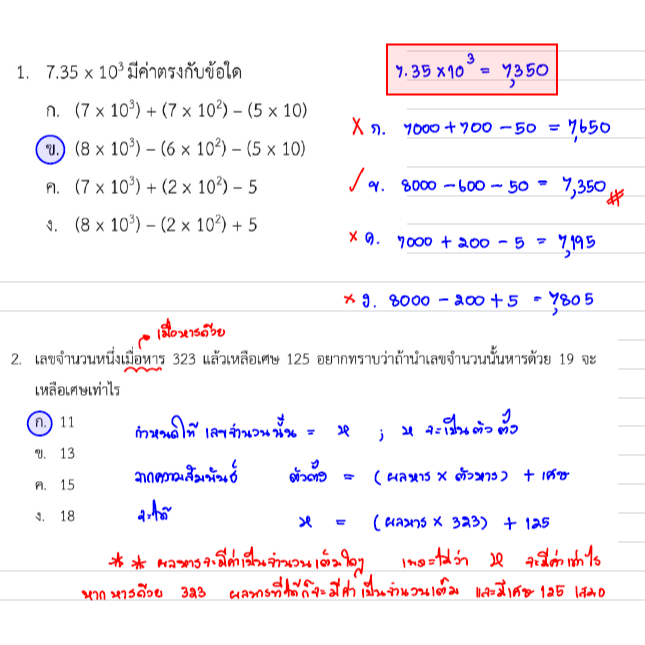 1. 7.35 × 10³ มีค่าตรงกับข้อใด
7.35 ×10³ = 7,350
ก. (7 × 10³) + (7 × 10²) – (5 × 10)
✗ ก. 7000 + 700 - 50 = 7,650
ข. (8 × 10³) – (6 × 10²) – (5 × 10)
✓ ข. 8000 - 600 - 50 = 7,350 #
ค. (7 × 10³) + (2 × 10²) – 5
✗ ค. 7000 + 200 - 5 = 7,195
ง. (8 × 10³) – (2 × 10²) + 5
✗ ง. 8000 - 200 + 5 = 7,805
เมื่อหารด้วย
2. เลขจำนวนหนึ่งเมื่อหาร 323 แล้วเหลือเศษ 125 อยากทราบว่าถ้านำเลขจำนวนนั้นหารด้วย 19 จะ
เหลือเศษเท่าไร
ก. 11
กำหนดให้ เลขจำนวนนั้น = x ; x จะเป็นตัวตั้ง
ข. 13
ค. 15
จากความสัมพันธ์ ตัวตั้ง = (ผลหาร × ตัวหาร) + เศษ
ง. 18
จะได้ x = (ผลหาร × 323) + 125
* * ผลหารจะมีค่าเป็นจำนวนเต็มใดๆ เพราะไม่ว่า x จะมีค่าเท่าไร
หากหารด้วย 323 ผลหารที่ได้ก็จะมีค่าเป็นจำนวนเต็ม และมีเศษ 125 เสมอ